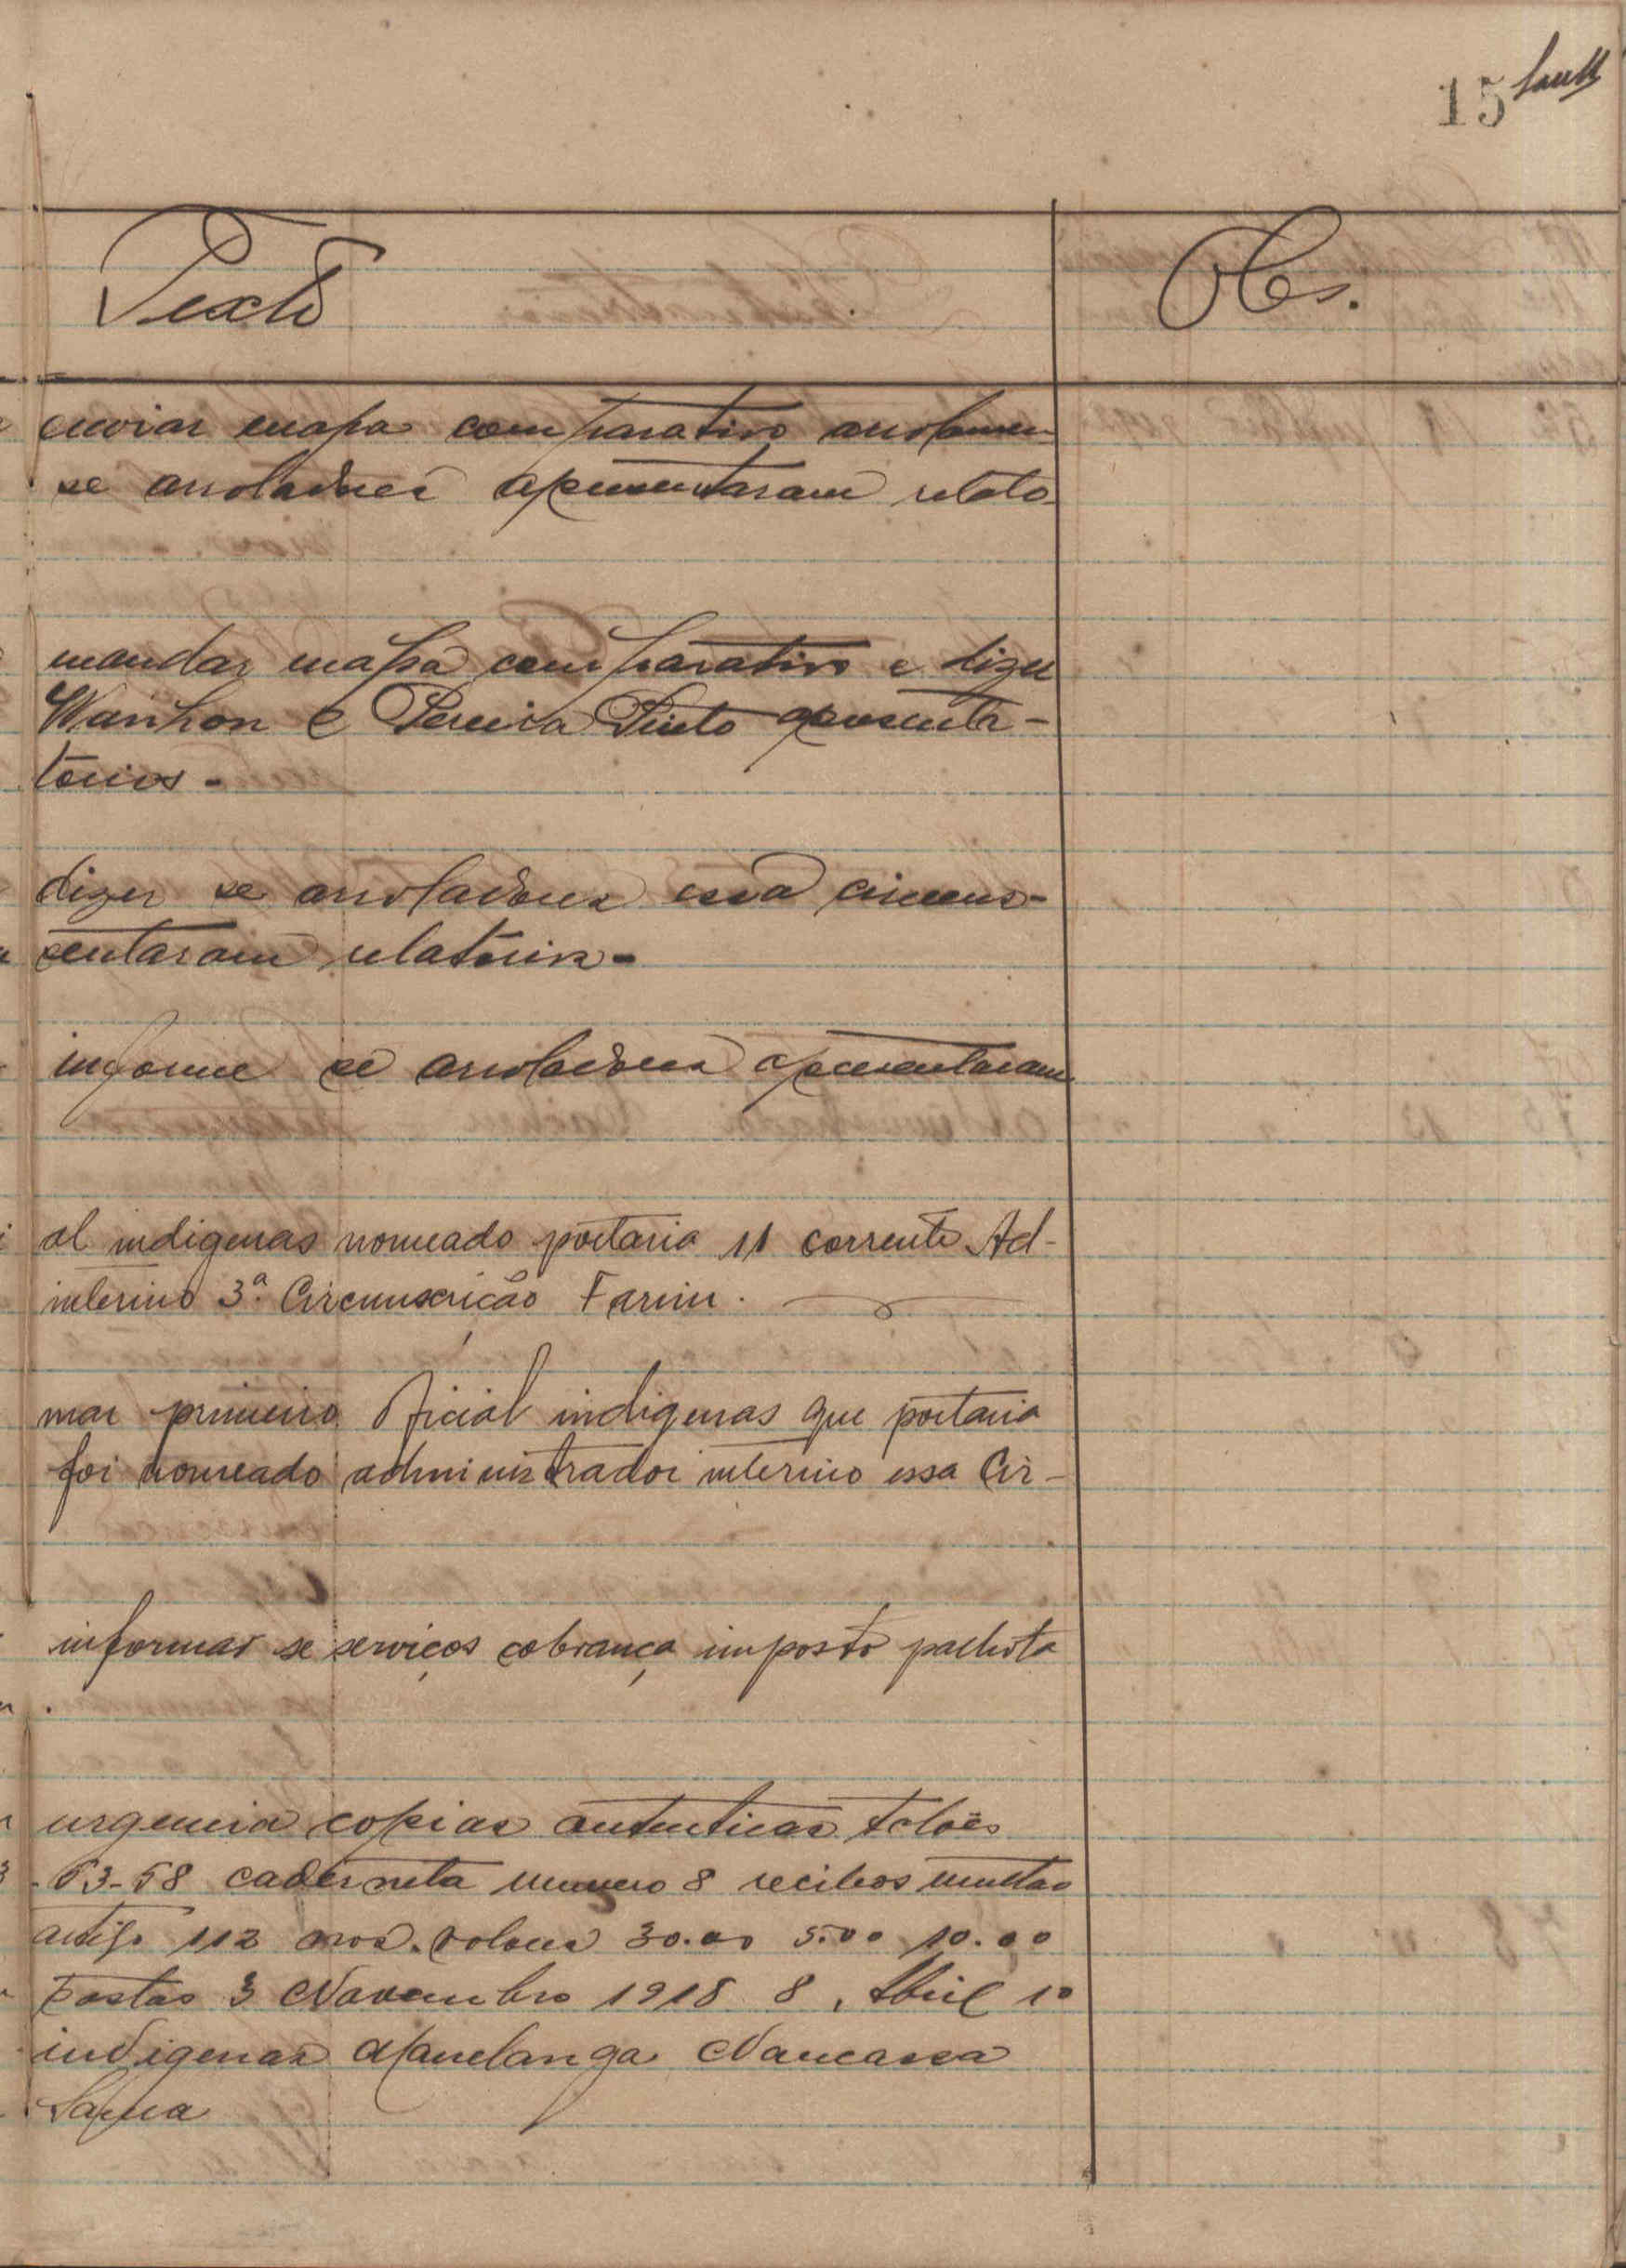 15
Texto
Obs.
enviar mapa comparativo arrolamen
se arroladores apresentaram relato
mandar mapa comparativo e dizer
Wanhon e Pereira Pinto apresenta-
torios -
dizer se arroladores essa circuns-
sentaram relatorios -
informe se arroladores apresentaram
al indigenas nomeado portaria 11 corrente Ad-
interino 3ª. Circunscrição Farim.
mar primeiro oficial indigenas que portaria
foi nomeado administrador interino essa Cir-
informar se serviços cobrança imposto palhota
urgencia copias autenticas talões
53-58 caderneta numero 8 recibos multas
artigo 112 valores 30.00 5.00 10.00
postas 3 Novembro 1918 8, Abril 10
indigenas